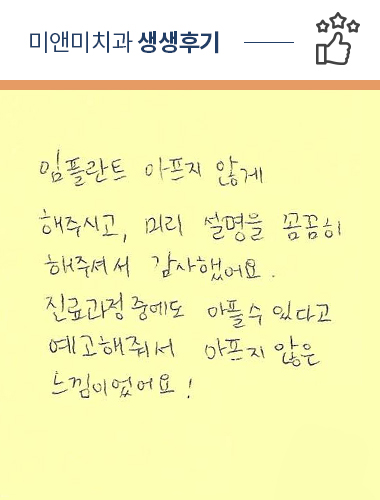 미앤미치과 생생후기
임플란트 아프지 않게
해주시고, 미리 설명을 꼼꼼히
해주셔서 감사했어요.
진료과정 중에도 아플수 있다고
예고해줘서 아프지 않은
느낌이었어요!